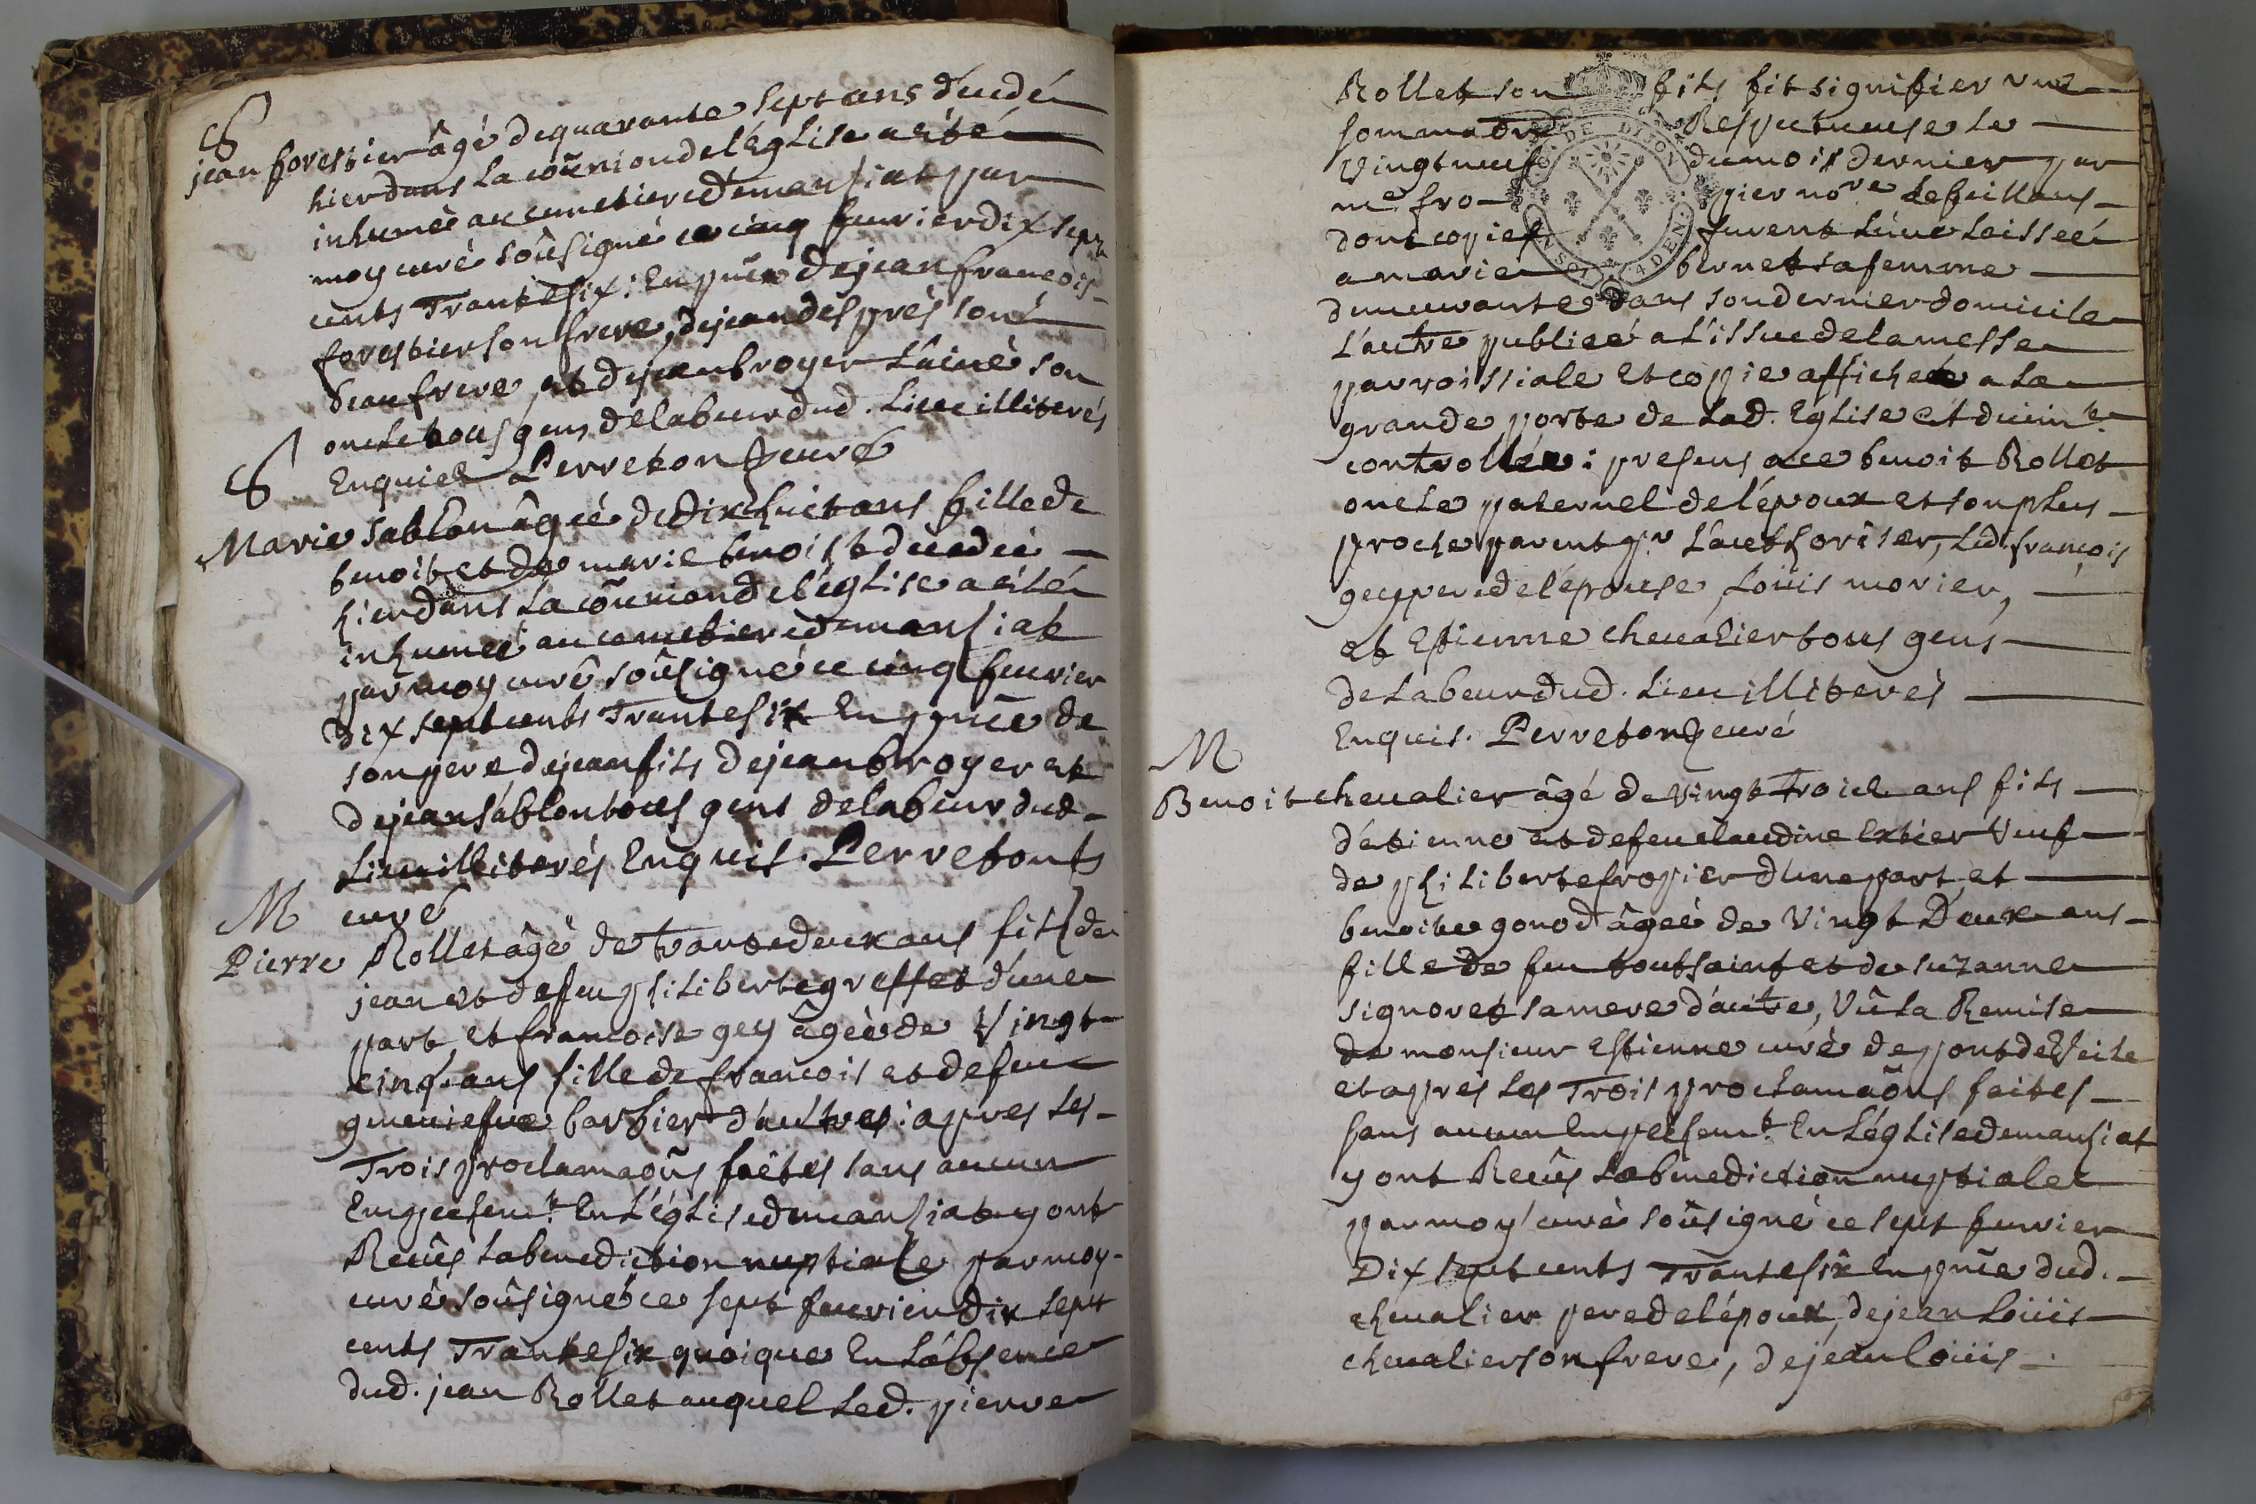 S
jean forestier âgé de quarante sept ans décédé
hier dans la coũnion de l'église a été
inhumé au cimetiere de mansiat par
moy curé soûsigné ce cinq fevrier dix sept
cents Trante six: En pñce de jean francois
forestier son frere, de jean desprès son
beaufrere et de jean broyer L'ainé son
oncle tous gens de labeur dud. Lieu illiterés
Enquis Perreton curé
S
Marie sablon âgée de Dixhuit ans fille de
benoit et de marie benoist décédée
hier dans la coũnion de l'église a été
inhumée au cimetiere de mansiat
par moy curé soûsigné ce cinq fevrier
Dix sept cents Trante six En pñce de
son pere de jean fils de jean broyer et
de jean sablon tous gens de labeur dud.
Lieu illiterés Enquis. Perreton
curé
M
Pierre Rollet âgé de trante deux ans fils de
jean et de feu philiberte greffet d'une
part, et francoise gey âgée de Vingt
cinq ans fille de francois et de feu
geneviefve barbier d'autres: apres les
Trois proclamaoñs faites sans aucun
Empeschemt. En L'église de mansiat y ont
Reçûs la benediction nuptiale par moy
curé soûsigné ce sept fevrier dix sept
cents Trante six quoique En L'absence
dud. jean Rollet auquel led. pierre
Rollet son fils fit signifier une
sommaõn Respectueuse le
Vingt neuf du mois dernier par
me. fro pier nore. Lefeillans
dont copies furent L'une Laissée
a marie bernet sa femme
demeurante dans son dernier domicile
L'autre publiée a L'issue de la messe
parroissiale et copie affichée a la
grande porte de lad. Eglise et duëmt.
controllée: presens a ce benoit Rollet
oncle paternel de l'époux et son plus
proche parent pr. L'authoriser, led. françois
gey pere de l'épouse, Loüis morier,
et Estienne chevalier tous gens
de Labeur dud. Lieu illiterés
Enquis. Perreton curé
M
Benoit chevalier âgé de Vingt Trois ans fils
d'étienne et de feu claudine Extier Veuf
de philiberte fropier d'une part, et
benoite gonod âgée de Vingt Deux ans
fille de feu toutsaint et de suzanne
signoret sa mere d'autre, Vû la Remise
de monsieur Estienne curé de pontdeVeile
et aprés les Trois proclamaõns faites
sans aucun Empeschemt. En L'église de mansiat
y ont Reçûs la benediction nuptiale
par moy curé soûsigné ce sept fevrier
Dix sept cents Trante six En pñce dud.
chevalier pere de l'époux, de jean Loüis
chevalier son frere, de jean loüis